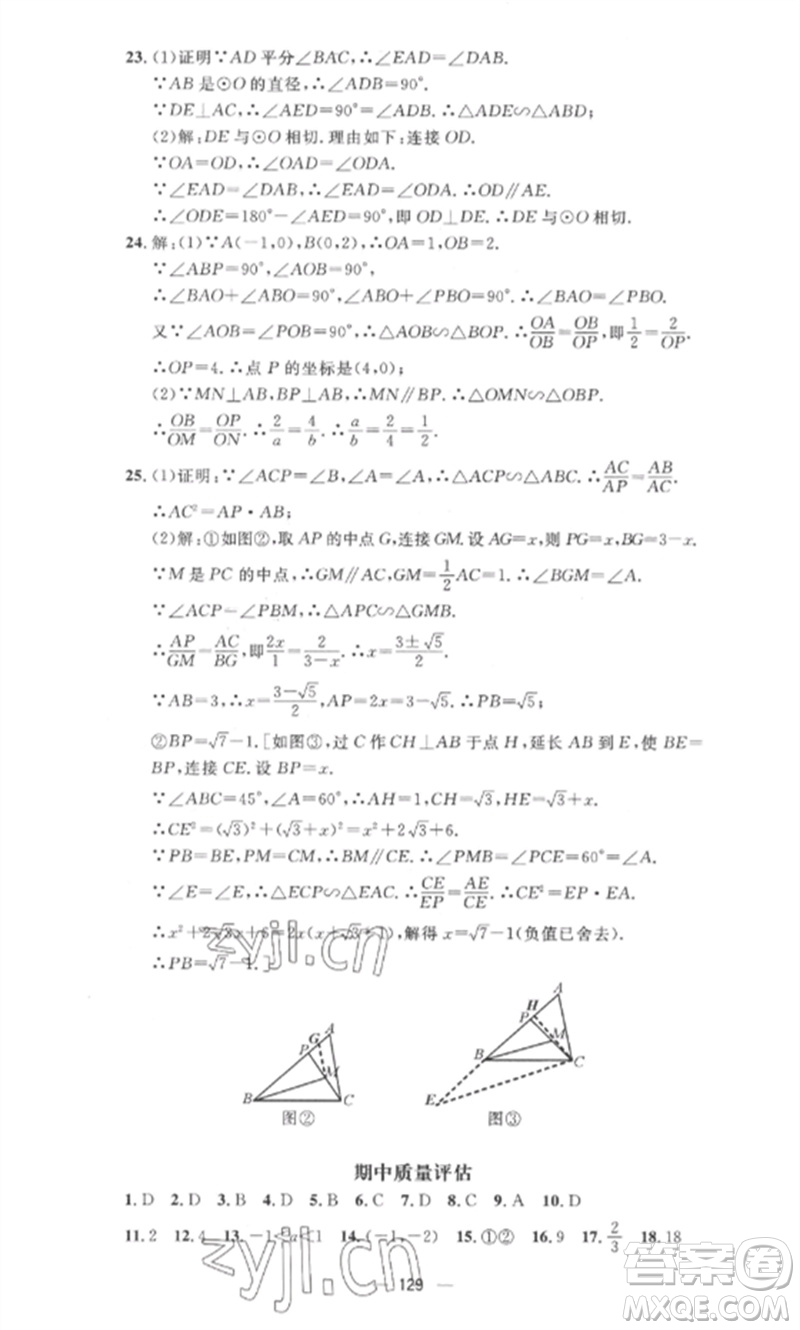 23. (1)证明∵AD平分∠BAC,∴∠EAD=∠DAB.
∵AB是⊙O的直径,∴∠ADB=90°.
∵DE⊥AC,∴∠AED=90°=∠ADB.∴△ADE∽△ABD;
(2)解:DE与⊙O相切.理由如下:连接OD.
∵OA=OD,∴∠OAD=∠ODA.
∵∠EAD=∠DAB,∴∠EAD=∠ODA.∴OD∥AE.
∴∠ODE=180°-∠AED=90°,即OD⊥DE.∴DE与⊙O相切.
24. 解:(1)∵A(-1,0),B(0,2),∴OA=1,OB=2.
∵∠ABP=90°,∠AOB=90°,
∴∠BAO+∠ABO=90°,∠ABO+∠PBO=90°.∴∠BAO=∠PBO.
又∵∠AOB=∠POB=90°,∴△AOB∽△BOP.∴OA/OB=OB/OP,即1/2=2/OP.
∴OP=4.∴点P的坐标是(4,0);
(2)∵MN⊥AB,BP⊥AB,∴MN∥BP.∴△OMN∽△OBP.
∴OB/OM=OP/ON.∴2/a=4/b.∴a/b=2/4=1/2.
25. (1)证明:∵∠ACP=∠B,∠A=∠A,∴△ACP∽△ABC.∴AC/AP=AB/AC.
∴AC²=AP·AB;
(2)解:①如图②,取AP的中点G,连接GM.设AG=x,则PG=x,BG=3-x.
∵M是PC的中点,∴GM∥AC,GM=1/2AC=1.∴∠BGM=∠A.
∵∠ACP=∠PBM,∴△APC∽△GMB.
∴AP/GM=AC/BG,即2x/1=2/(3-x).∴x=(3±√5)/2.
∵AB=3,∴x=(3-√5)/2,AP=2x=3-√5.∴PB=√5;
②BP=√7-1.[如图③,过C作CH⊥AB于点H,延长AB到E,使BE=
BP,连接CE.设BP=x.
∵∠ABC=45°,∠A=60°,∴AH=1,CH=√3,HE=√3+x.
∴CE²=(√3)²+(√3+x)²=x²+2√3x+6.
∵PB=BE,PM=CM,∴BM∥CE.∴∠PMB=∠PCE=60°=∠A.
∵∠E=∠E,∴△ECP∽△EAC.∴CE/EP=AE/CE.∴CE²=EP·EA.
∴x²+2√3x+6=2x(x+√3+1),解得x=√7-1(负值已舍去).
∴PB=√7-1.]
A
G
P
M
B
C
图②
A
H
P
M
B
C
E
图③
期中质量评估
1. D 2. D 3. B 4. D 5. B 6. C 7. D 8. C 9. A 10. D
11. 2 12. 4 13. -1<a<1 14. (-1,-2) 15. ①② 16. 9 17. 2/3 18. 18
— 129 —
zyjl.cn
zyjl.cn
答案圈
MXQE.COM